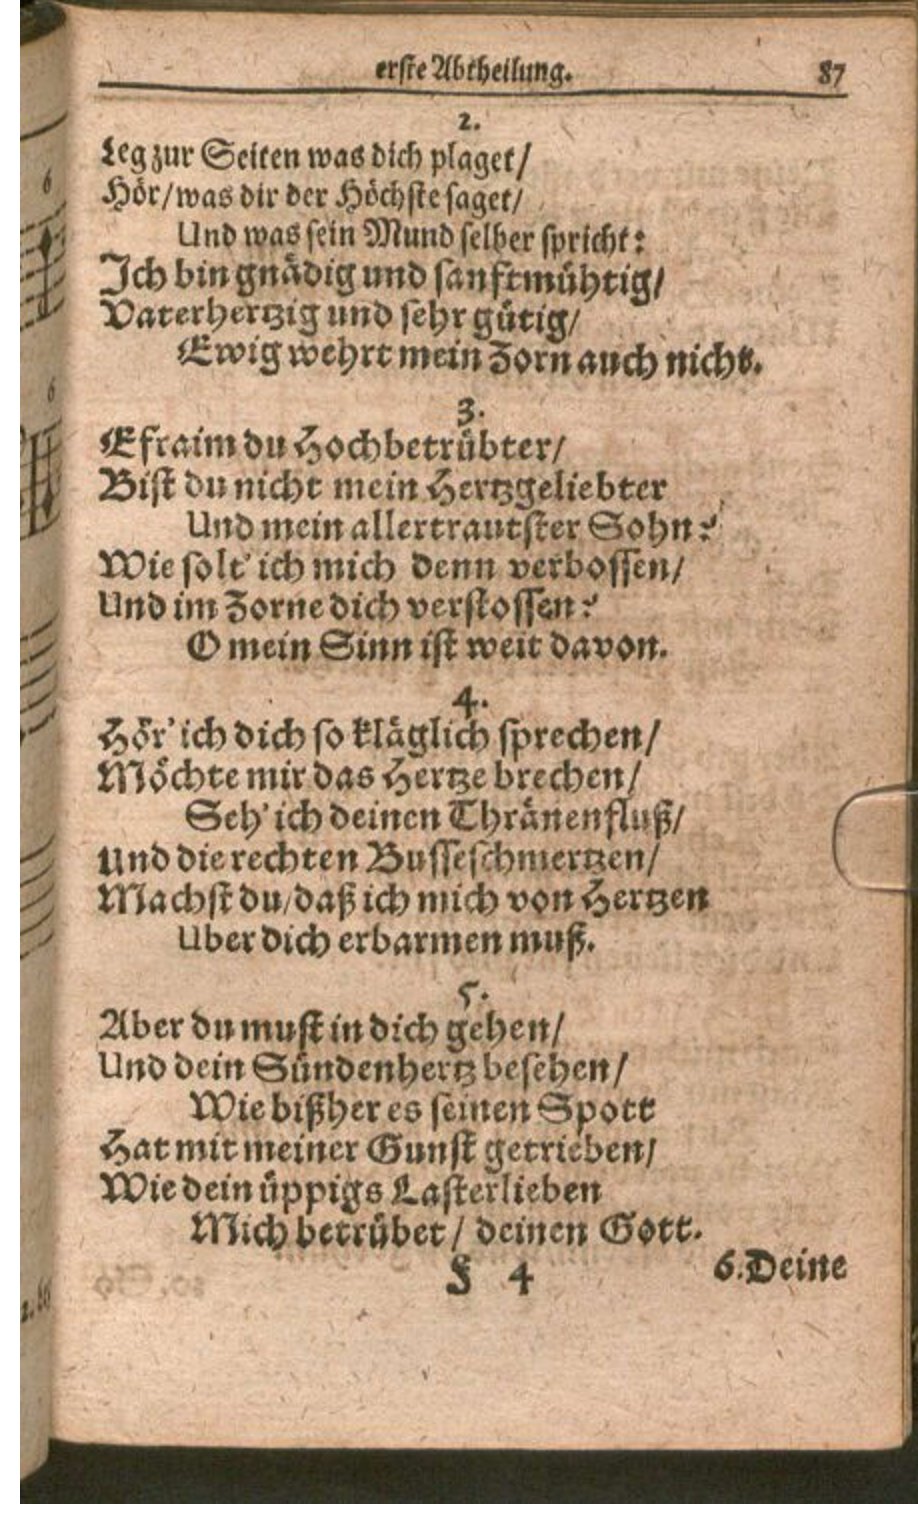 erste Abtheilung. 87
2.
Leg zur Seiten was dich plaget/
Hör/was dir der Höchste saget/
Und was sein Mund selber spricht:
Ich bin gnädig und sanftmühtig/
Vaterhertzig und sehr gütig/
Ewig wehrt mein Zorn auch nicht.
3.
Efraim du Hochbetrübter/
Bist du nicht mein Hertzgeliebter
Und mein allertrautster Sohn?
Wie solt' ich mich denn verbossen/
Und im Zorne dich verstossen?
O mein Sinn ist weit davon.
4.
Hör' ich dich so kläglich sprechen/
Möchte mir das Hertze brechen/
Seh' ich deinen Thränenfluß/
Und die rechten Busseschmertzen/
Machst du/daß ich mich von Hertzen
Uber dich erbarmen muß.
5.
Aber du must in dich gehen/
Und dein Sündenhertz besehen/
Wie bißher es seinen Spott
Hat mit meiner Gunst getrieben/
Wie dein üppigs Lasterlieben
Mich betrübet/ deinen Gott.
F 4 6. Deine